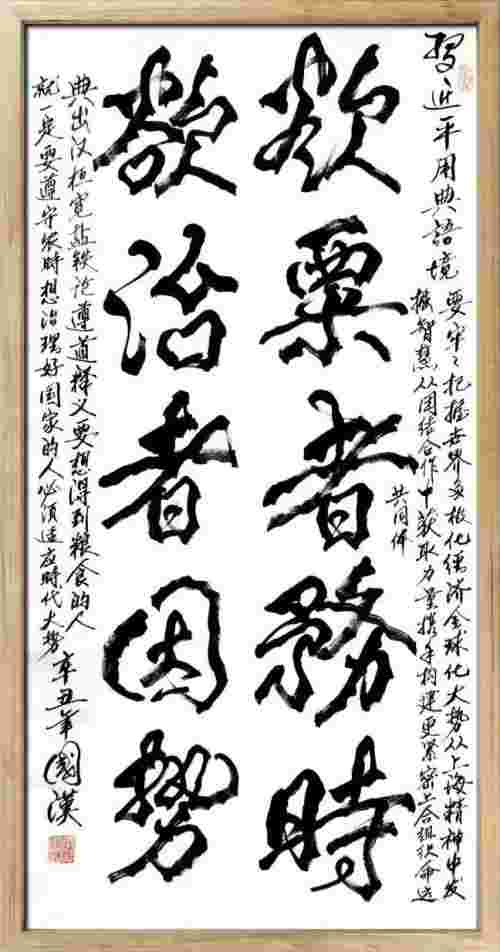 习近平用典語境
要牢牢把握世界多极化经济全球化大势从上海精神中发
掘智慧从团结合作中获取力量携手构建更紧密上合组织命运
共同体
欲粟者務時
欲治者因勢
典出汉桓宽盐铁论遵道释义要想得到粮食的人
就一定要遵守农時想治理好国家的人必须适应時代大势
辛丑年國漢